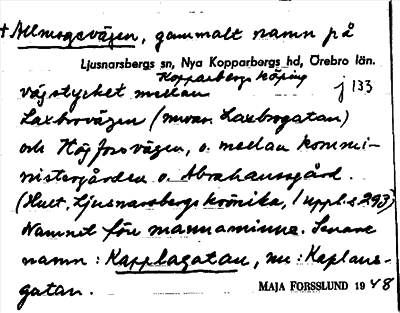 + Allmogevägen, gammalt namn på
Ljusnarsbergs sn, Nya Kopparbergs hd, Örebro län.
Kopparbergs köping
vägstycket mellan j 133
Laxbrovägen (nuvar. Laxbrogatan)
och Högforsvägen, o. mellan kommi-
nistergården o. Abrahamsgård.
(Hult, Ljusnarsbergs krönika, 1 uppl. s 293)
Namnet före mannaminne. Senare
namn: Kapplagatan, nu: Kaplans-
gatan.
MAJA FORSSLUND 1948